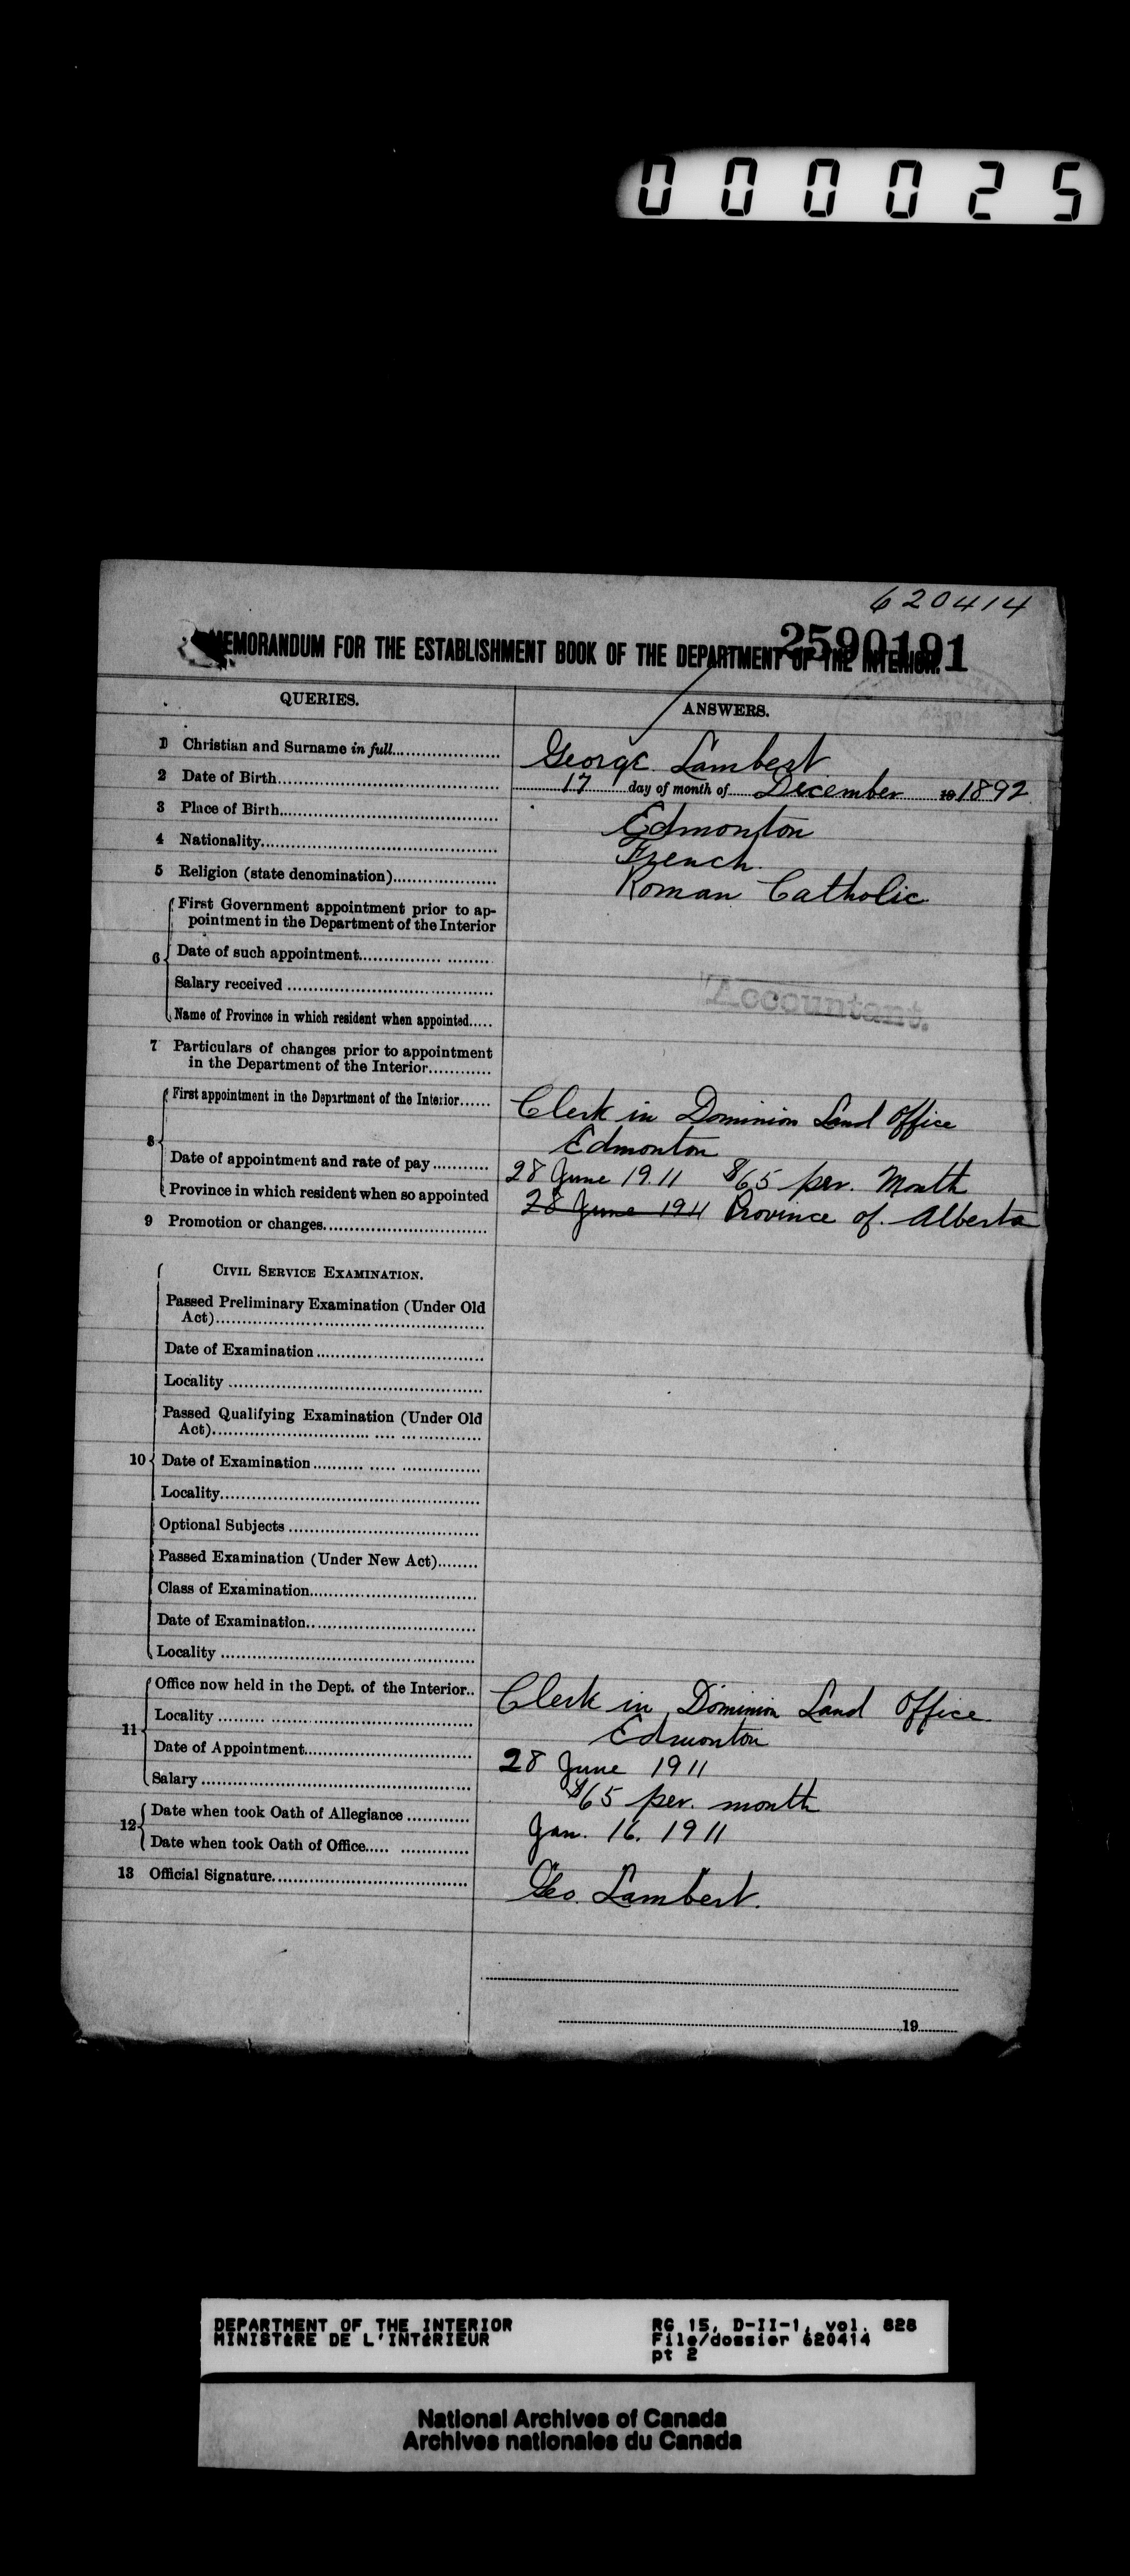 000025
620414
2590191
MEMORANDUM FOR THE ESTABLISHMENT BOOK OF THE DEPARTMENT OF THE INTERIOR.
QUERIES. ANSWERS.
1 Christian and Surname in full.................... George Lambert
2 Date of Birth.................... 17 day of month of December 18 1892
3 Place of Birth.................... Edmonton
4 Nationality.................... French.
5 Religion (state denomination).................... Roman Catholic
First Government appointment prior to ap-
pointment in the Department of the Interior
6 Date of such appointment....................
Salary received ....................
Accountant.
Name of Province in which resident when appointed.....
7 Particulars of changes prior to appointment
in the Department of the Interior............
8 First appointment in the Department of the Interior...... Clerk in Dominion Land Office
Edmonton
Date of appointment and rate of pay........... 28 June 1911 $65 per. Month
Province in which resident when so appointed 28 June 1911 Province of. Alberta
9 Promotion or changes....................
CIVIL SERVICE EXAMINATION.
Passed Preliminary Examination (Under Old
Act)....................
Date of Examination....................
Locality ....................
Passed Qualifying Examination (Under Old
Act)....................
10 Date of Examination....................
Locality....................
Optional Subjects ....................
Passed Examination (Under New Act)........
Class of Examination....................
Date of Examination....................
Locality ....................
11 Office now held in the Dept. of the Interior.. Clerk in Dominion Land Office
Locality .................... Edmonton
Date of Appointment.................... 28 June 1911
Salary .................... $65 per. month
12 Date when took Oath of Allegiance ............ Jan. 16. 1911
Date when took Oath of Office....................
13 Official Signature.................... Geo. Lambert.
19
DEPARTMENT OF THE INTERIOR RG 15, D-II-1, vol. 828
MINISTÈRE DE L'INTÉRIEUR File/dossier 620414
pt 2
National Archives of Canada
Archives nationales du Canada